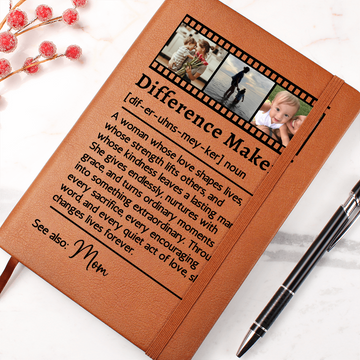 Difference Make
[dif-er-uhns-mey-ker] noun
A woman whose love shapes lives,
whose strength lifts others, and
whose kindness leaves a lasting
She gives endlessly, nurtures with
grace, and turns ordinary moments
into something extraordinary. Throu
every sacrifice, every encouraging
word, and every quiet act of love, s
changes lives forever.
See also: Mom